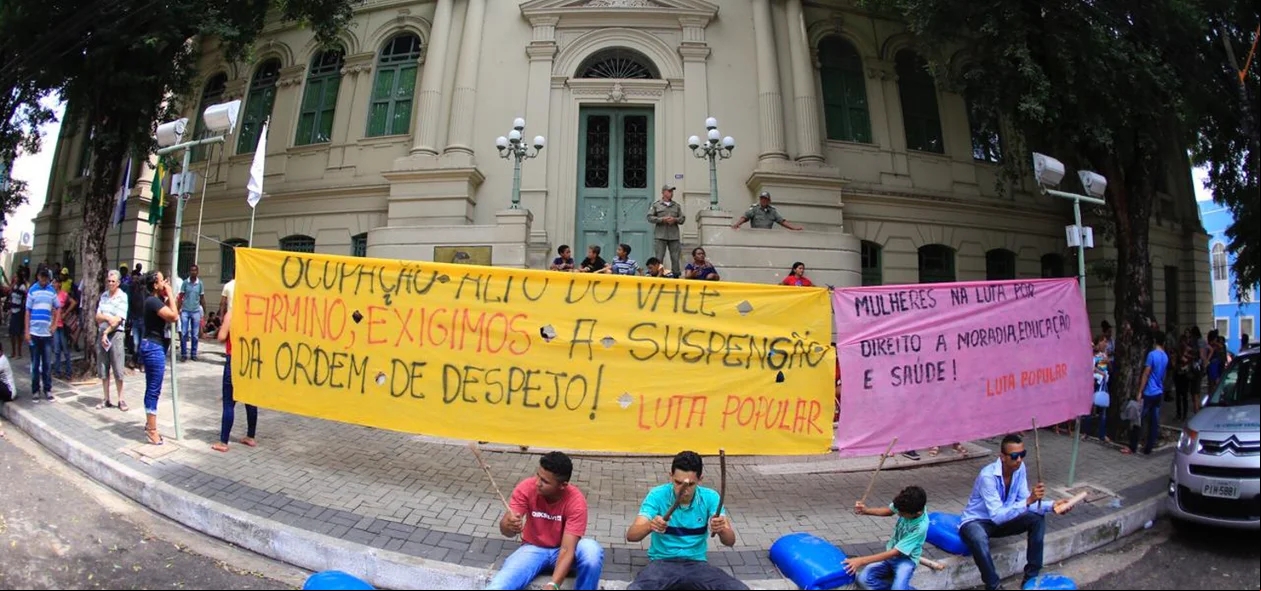 OCUPAÇÃO ALTO DO VALE
FIRMINO; EXIGIMOS A SUSPENSÃO
DA ORDEM DE DESPEJO!
LUTA POPULAR
MULHERES NA LUTA POR
DIREITO A MORADIA, EDUCAÇÃO
E SAÚDE!
LUTA POPULAR
PIH-5881